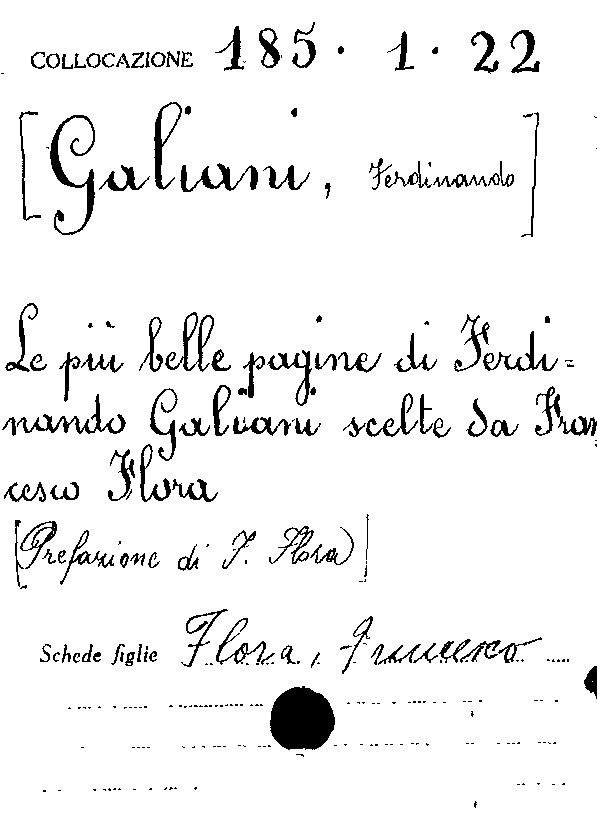 COLLOCAZIONE 185. 1. 22
[Galiani, Ferdinando]
Le più belle pagine di Ferdi=
nando Galiani scelte da Fran
cesco Flora
[(Prefazione di F. Flora)]
Schede figlie Flora, Francesco